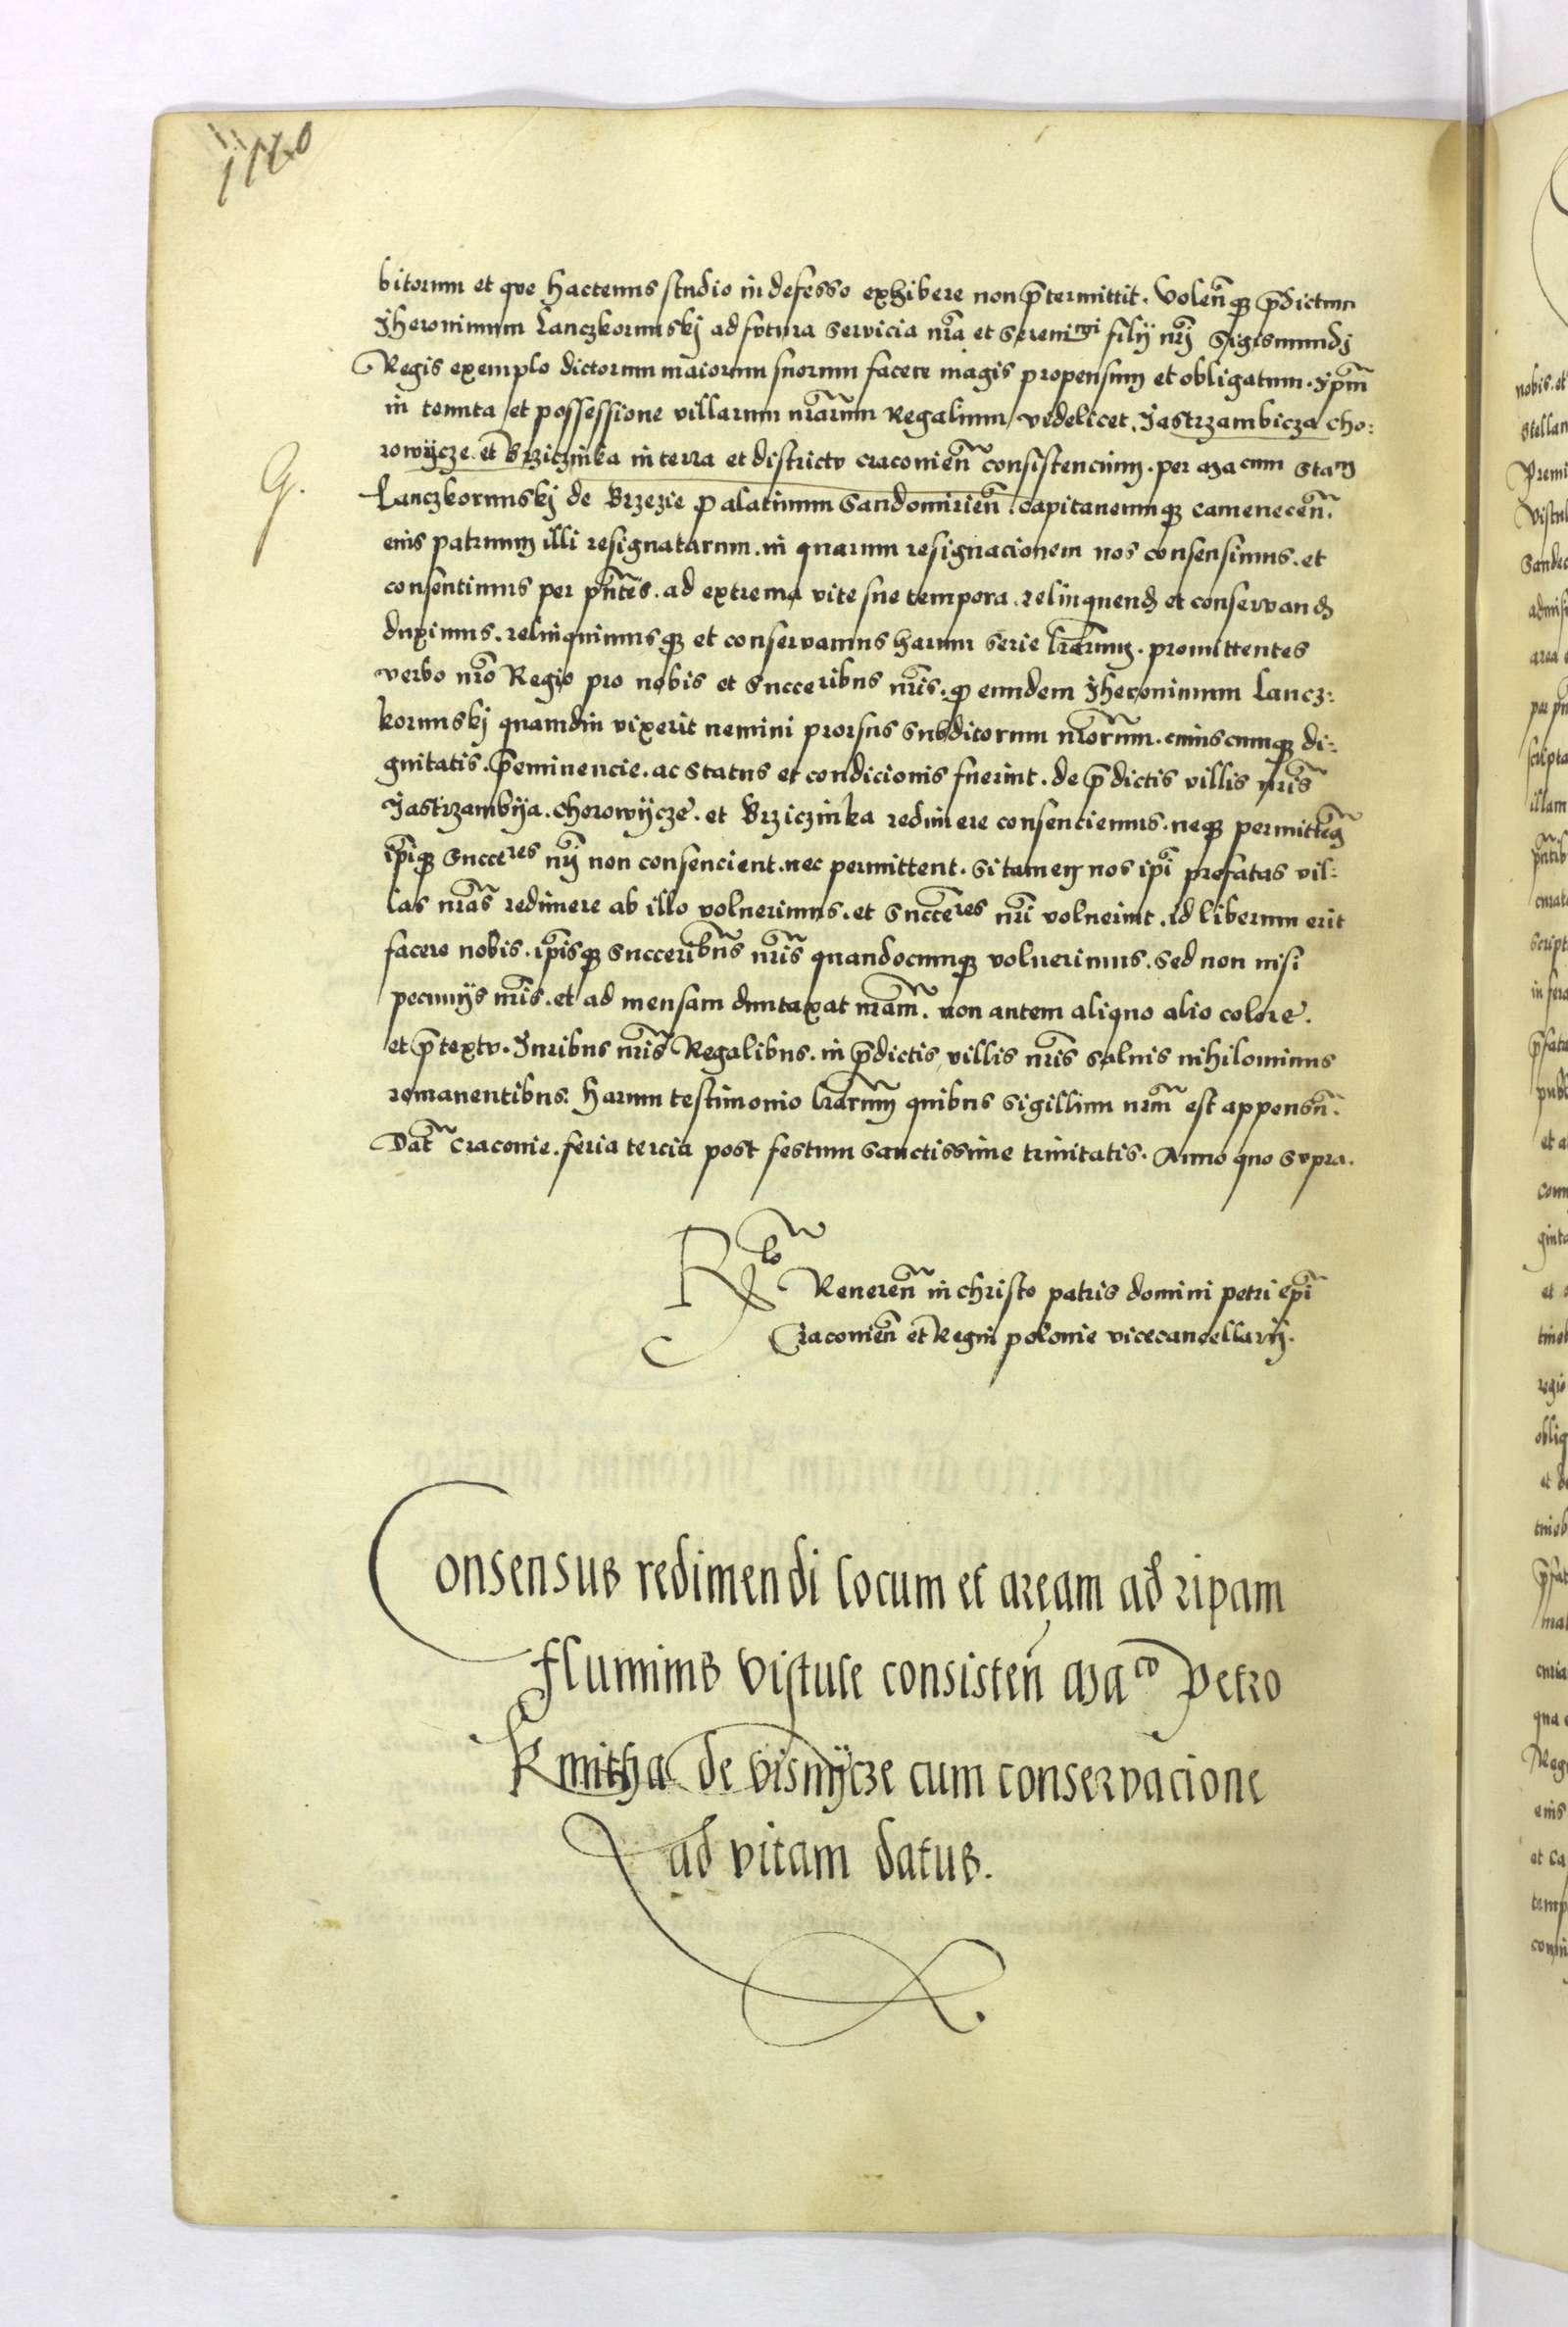 bitorum et que hactenus studio indefesso exhibere non p̄termittit. Volen̄q̨ p̄dictum
Jheronimum Lanczkorunskj ad futura servicia nr̄a et Serenimi filij nr̄j Sigismundj
Regis exemplo dictorum maiorum suorum facere magis propensum et obligatum. ip̄m
in tenuta et possessione villarum nr̄arum Regalium videlicet. Jastrzambicza cho:
rowycze. et Brziczinka in terra et districtu cracovien̄ consistencium. per Macum Stam
Lanczkorunskj de Brzezie palatinum Sandomirien̄. capitaneumq̨ camenecen̄.
eius patruum illi resignatarum. in quarum resignacionem nos consensimus. et
consentimus per pn̄tes. ad extrema vite sue tempora. relinquend̨ et conservand̨
duximus. relinquimusq̨ et conservamus harum serie lr̄arum. promittentes
verbo nr̄o Regio pro nobis et Succeribus nr̄is. q̨ eundem Jheronimum Lancz:
korunskj quamdiu vixerit nemini prorsus subditorum nr̄orum. cuiuscumq̨ di:
gnitatis. p̄eminencie. ac status et condicionis fuerint. de p̄dictis villis nr̄is
Jastrzambya. chorowycze. et Brziczinka redimere consenciemus. neq̨ permittem̨
ip̄iq̨ Succeres nr̄j non consencient. nec permittent. Si tamen nos ip̄i prefatas vil:
las nr̄as redimere ab illo voluerimus. et Succeres nr̄i voluerint. id liberum erit
facere nobis. ip̄isq̨ Succeribus nr̄is quandocumq̨ voluerimus. Sed non nisi
pecunijs nr̄is. et ad mensam duntaxat nr̄am. non autem aliquo alio colore.
et p̄textu. Juribus nr̄is Regalibus. in p̄dictis villis nr̄is salvis nihilominus
romanentibus. harum testimonio lr̄arum quibus Sigillum nr̄m est appensu̅.
Dat̄ Cracovie. feria tercia post festum Sanctissime trinitatis. Anno quo supra.
Rlo Reveren̄ in christo patris domini petri ep̄i
Cracovien̄ et Regni polonie vicecancellarij.
G.
Consensus redimendi locum et aream ad ripam
fluminis vistule consisten̄ Maco Petro
Kmitha de visnÿcze cum conservacione
ad vitam datus.